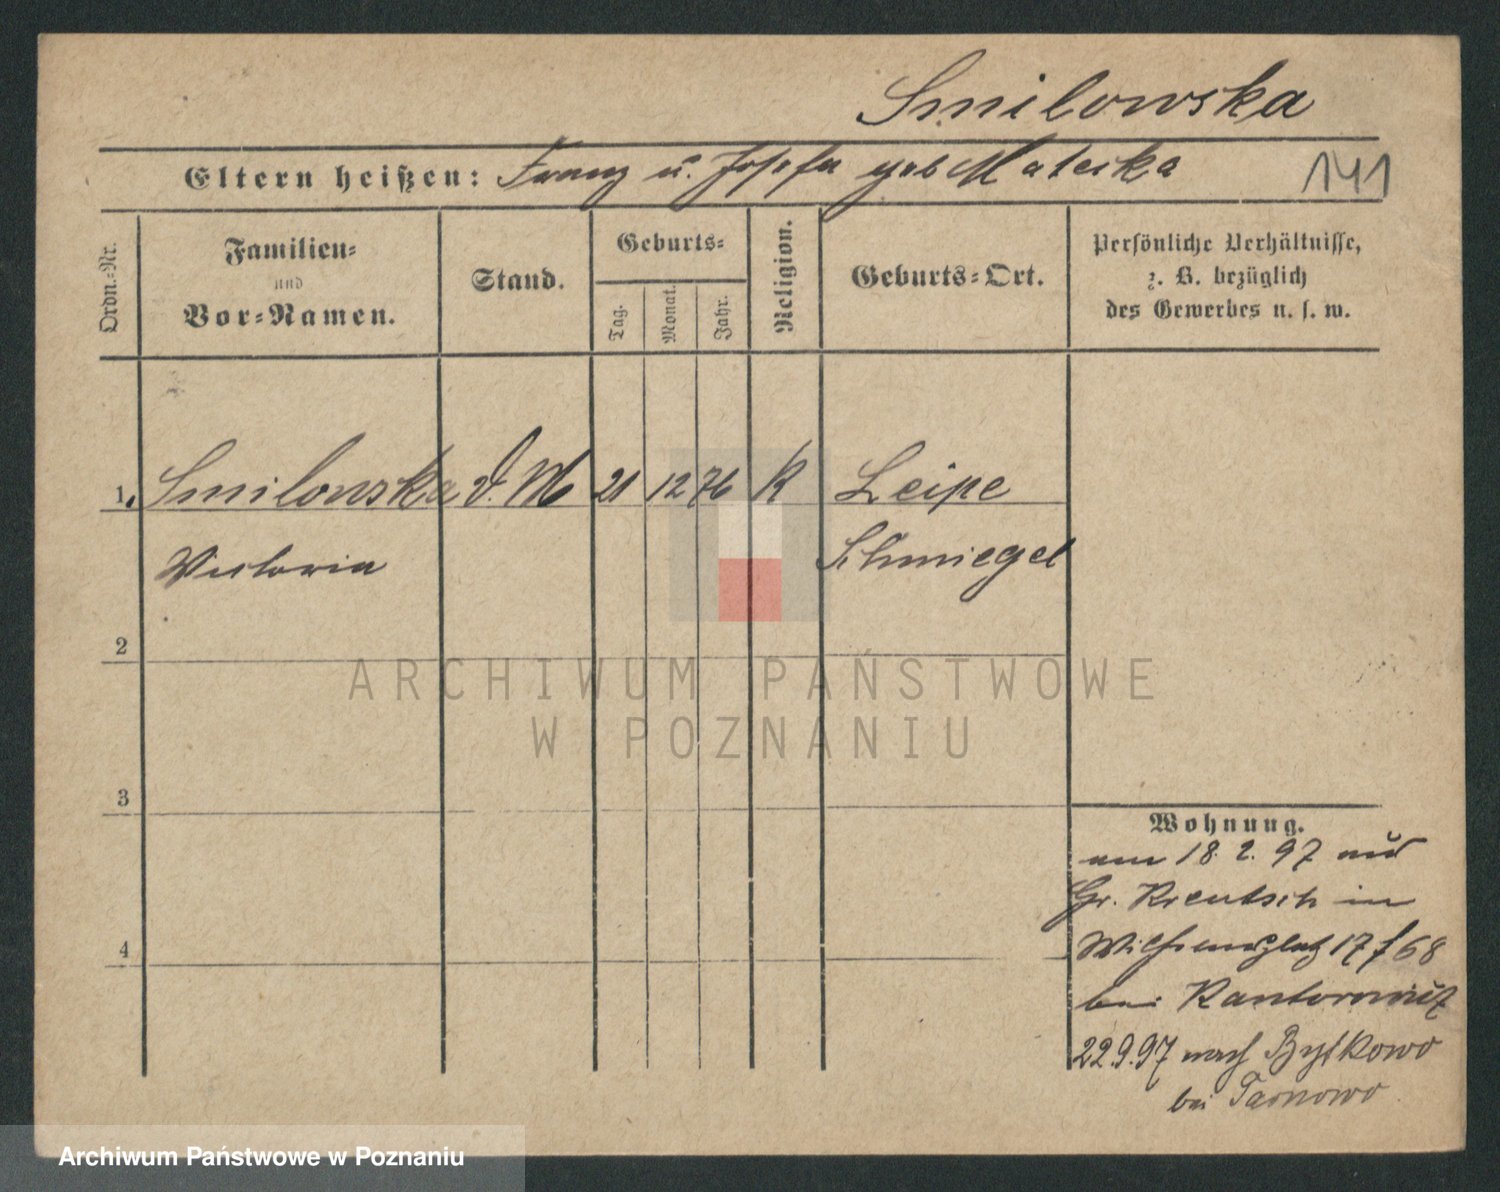 Smilowska
Eltern heißen: Franz u. Josefa geb Mateika
141
Ordn.-Nr.
Familien-
und
Vor-Namen.
Stand.
Geburts-
Tag.
Monat.
Jahr.
Religion.
Geburts-Ort.
Persönliche Verhältnisse,
z. B. bezüglich
des Gewerbes u. s. w.
1. Smilowska d. M 21 12 76 K Leipe
Victoria Schmiegel
2
3
4
Wohnung.
am 18. 2. 97 aus
Gr. Kreutsch in
17 / 68
bei Kantorowicz
22.9.97 nach Bytkowo
bei Tarnowo
ARCHIWUM PAŃSTWOWE
W POZNANIU
Archiwum Państwowe w Poznaniu